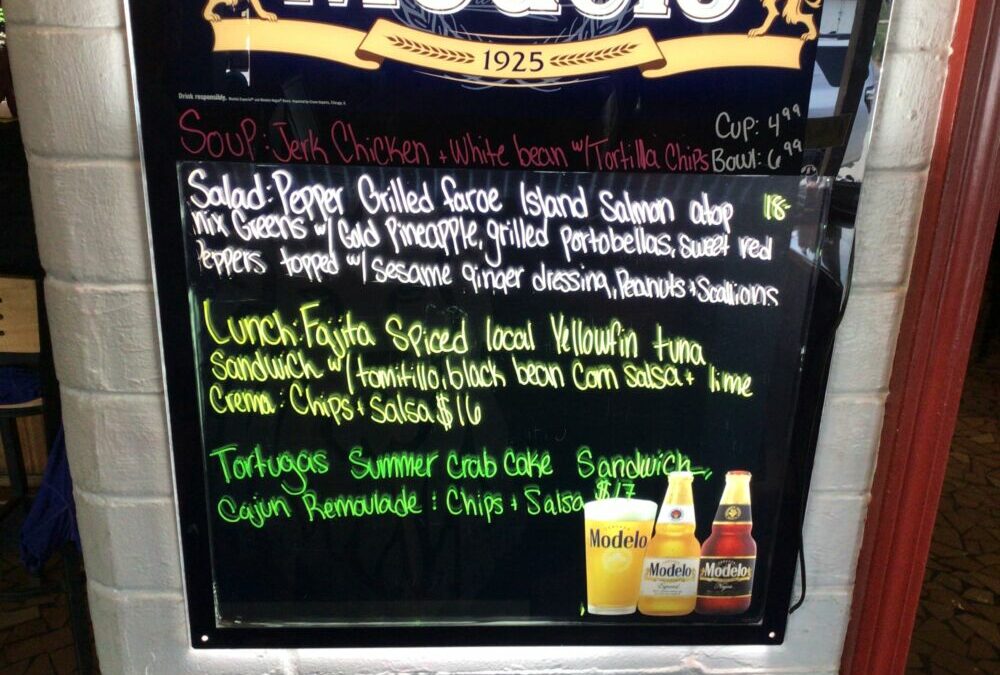 Modelo
1925
Drink responsibly.
Soup: Jerk Chicken + White bean w/ Tortilla Chips
Cup: 4.99
Bowl: 6.99
Salad: Pepper Grilled faroe Island Salmon atop 18-
mix Greens w/ Gold Pineapple, grilled portobellas, sweet red
Peppers topped w/ sesame ginger dressing, Peanuts + Scallions
Lunch: Fajita Spiced local Yellowfin tuna
Sandwich w/ tomitillo, black bean Corn Salsa + lime
Crema : Chips + Salsa $16
Tortugas Summer Crab Cake Sandwich,
Cajun Remoulade : Chips + Salsa $17
Modelo
Modelo
Especial
Modelo
Negra